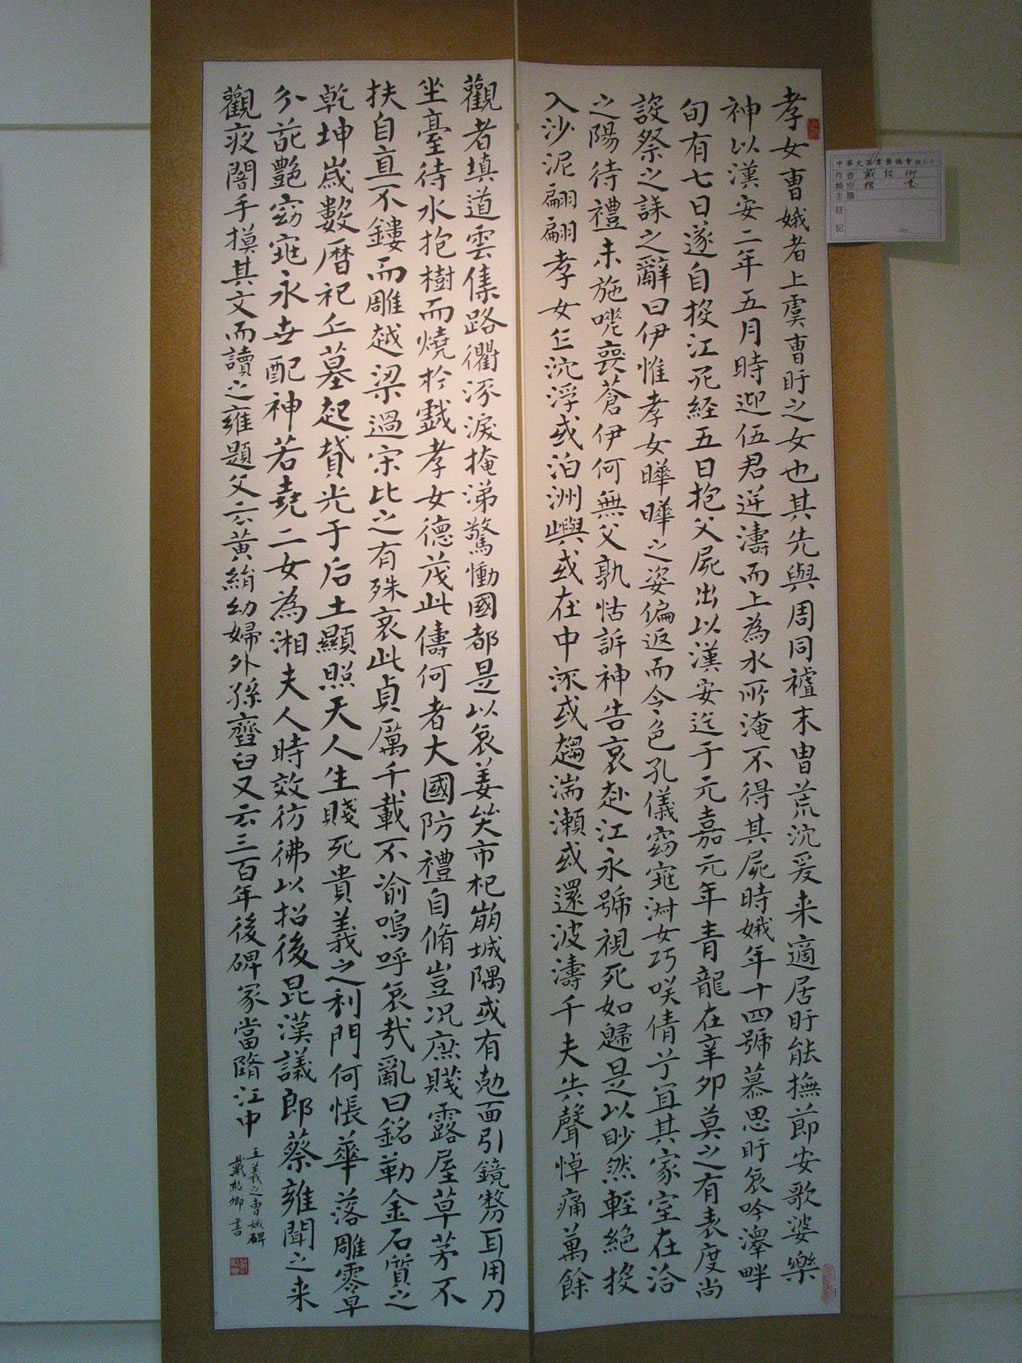 孝女曹娥者上虞曹盱之女也其先與周同祖末胄荒沈爰来適居盱能撫節安歌婆樂
神以漢安二年五月時迎伍君逆濤而上為水所淹不得其屍時娥年十四號慕思盱哀吟澤畔
旬有七日遂自投江死経五日抱父屍出以漢安迄于元嘉元年青龍在辛卯莫之有表度尚
設祭之誄之辭曰伊惟孝女曄曄之姿偏返而令色孔儀窈窕淑女巧咲倩兮宜其家室在洽
之陽待禮未施嗟喪蒼伊何無父孰怙訴神告哀赴江永號視死如歸是以眇然輕絕投
入沙泥翩翩孝女乍沉浮或泊洲嶼或在中流或趨湍瀬或還波濤千夫共聲悼痛萬餘
觀者填道雲集路衢泳淚掩涕驚慟國都是以哀姜哭市杞崩城隅或有勊面引鏡剺耳用刀
坐臺待水抱樹而燒於戲孝女德茂此儔何者大國防禮自脩豈況庶賤露屋草茅不
扶自直不鏤而雕越梁過宋比之有殊哀此貞厲千載不渝嗚呼哀㦲亂曰銘勒金石質之
乾坤歲數曆祀丘墓起賁光于后土顯照天人生賤死貴義之利門何悵華落雕零早
分葩艷窈窕永世配神若堯二女為湘夫人時效彷彿以招後昆漢議郎蔡雍聞之来
觀夜闇手摸其文而讀之雍題文云黃絹幼婦外孫齏臼又云三百年後碑冢當隋江中
王羲之曹娥碑